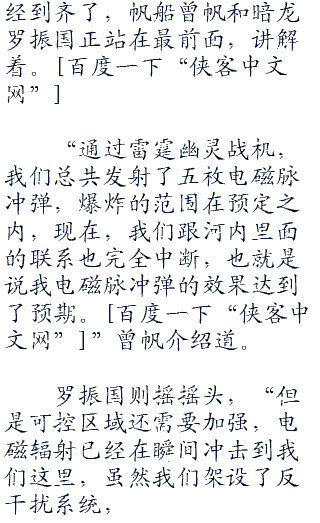 经到齐了，帆船曾帆和暗龙
罗振国正站在最前面，讲解
着。[百度一下“侠客中文
网”]
“通过雷霆幽灵战机，
我们总共发射了五枚电磁脉
冲弹，爆炸的范围在预定之
内，现在，我们跟河内里面
的联系也完全中断，也就是
说我电磁脉冲弹的效果达到
了预期。[百度一下“侠客中
文网”]”曾帆介绍道。
罗振国则摇摇头，“但
是可控区域还需要加强，电
磁辐射已经在瞬间冲击到我
们这里，虽然我们架设了反
干扰系统，